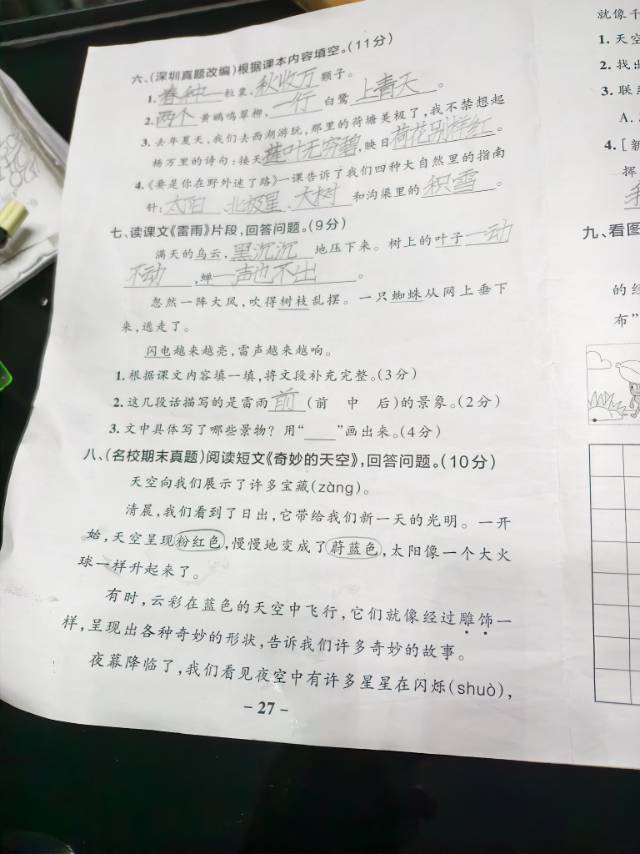 六、(深圳真题改编)根据课本内容填空。(11分)
1. 春种一粒粟,秋收万颗子。
2. 两个黄鹂鸣翠柳,一行白鹭上青天。
3. 去年夏天,我们去西湖游玩,那里的荷塘美极了,我不禁想起
杨万里的诗句:接天莲叶无穷碧,映日荷花别样红。
4.《要是你在野外迷了路》一课告诉了我们四种大自然里的指南
针:太阳、北极星、大树和沟渠里的积雪。
七、读课文《雷雨》片段,回答问题。(9分)
满天的乌云,黑沉沉地压下来。树上的叶子一动
不动,蝉一声也不出。
忽然一阵大风,吹得树枝乱摆。一只蜘蛛从网上垂下
来,逃走了。
闪电越来越亮,雷声越来越响。
1. 根据课文内容填一填,将文段补充完整。(3分)
2. 这几段话描写的是雷雨前(前 中 后)的景象。(2分)
3. 文中具体写了哪些景物?用“____”画出来。(4分)
八、(名校期末真题)阅读短文《奇妙的天空》,回答问题。(10分)
天空向我们展示了许多宝藏(zàng)。
清晨,我们看到了日出,它带给我们新一天的光明。一开
始,天空呈现粉红色,慢慢地变成了蔚蓝色,太阳像一个大火
球一样升起来了。
有时,云彩在蓝色的天空中飞行,它们就像经过雕饰一
样,呈现出各种奇妙的形状,告诉我们许多奇妙的故事。
夜幕降临了,我们看见夜空中有许多星星在闪烁(shuò),
- 27 -
就像千
1. 天空
2. 找出
3. 联
A.
4. [新
挥
九、看图
的经
布”